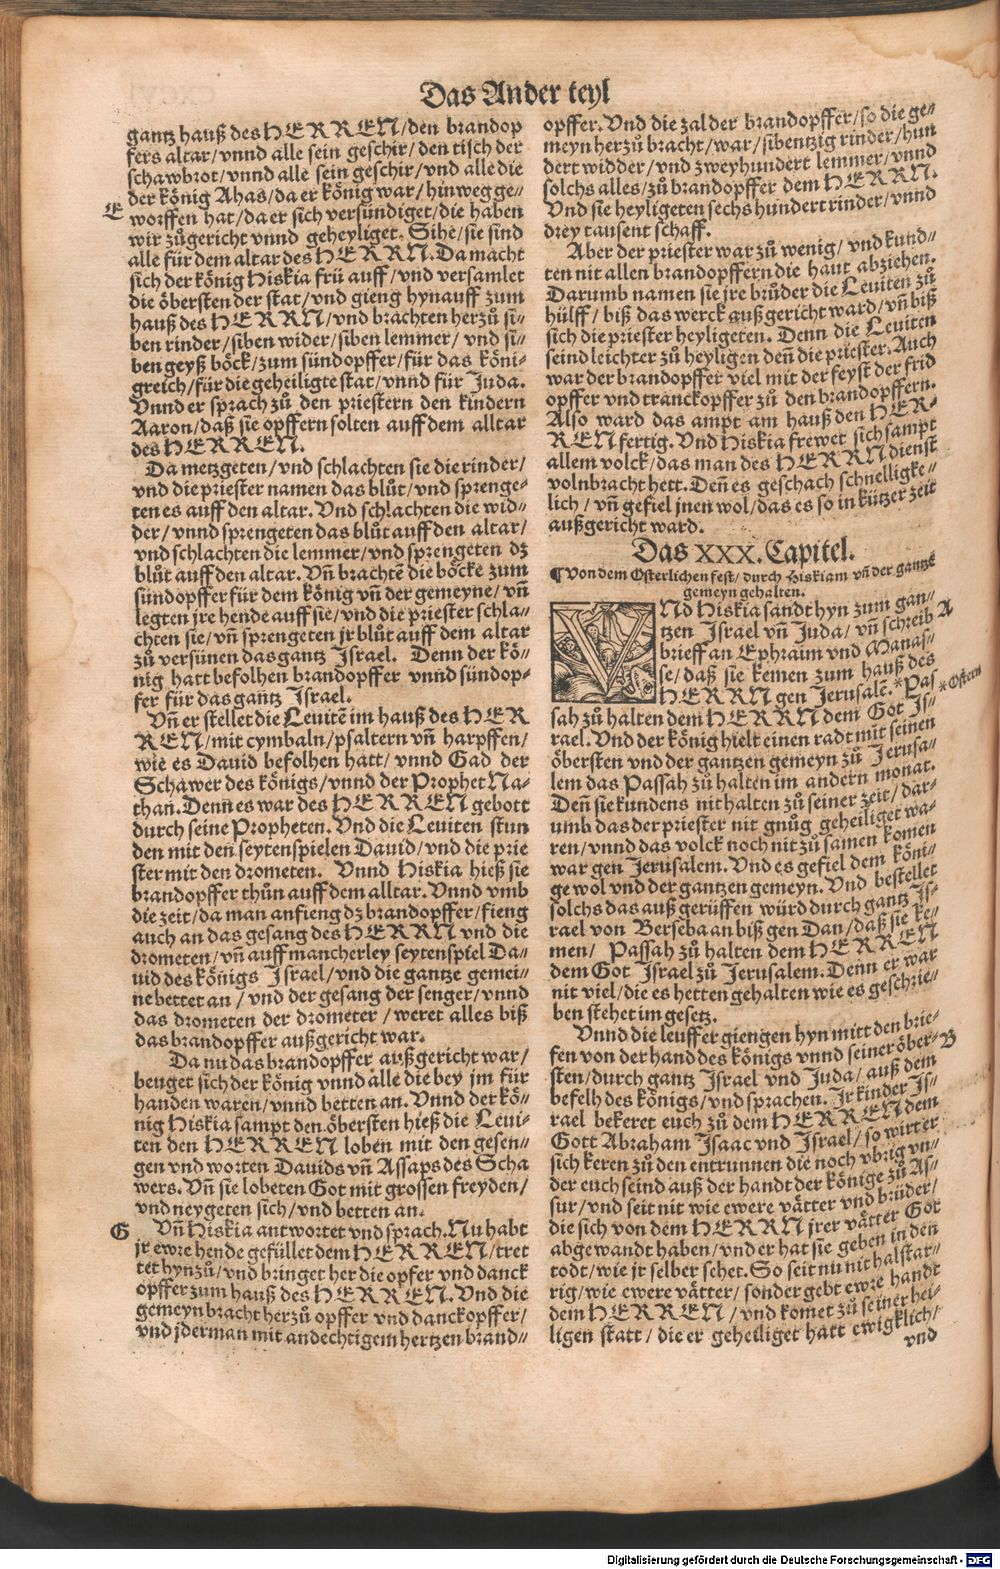 Das Ander teyl
gantz hauß des HERREN/den brandop
fers altar/vnnd alle sein geschir/den tisch der
schawbrot/vnnd alle sein geschir/vnd alle die
der könig Ahas/da er könig war/hinweg ge-
E
worffen hat/da er sich versündiget/die haben
wir zůgericht vnnd geheyliget. Sihe/sie sind
alle für dem altar des HERRN. Da macht
sich der könig Hiskia frü auff/vnd versamlet
die öbersten der stat/vnd gieng hynauff zum
hauß des HERRN/vnd brachten herzů si-
ben rinder/siben wider/siben lemmer/vnd si-
ben geyß böck/zum sündopffer/für das köni-
greich/für die geheiligte stat/vnnd für Juda.
Vnnd er sprach zů den priestern den kindern
Aaron/daß sie opffern solten auff dem alltar
des HERREN.
Da metzgeten/vnd schlachten sie die rinder/
vnd die priester namen das blůt/vnd sprenge-
ten es auff den altar. Vnd schlachten die wid-
der/vnnd sprengeten das blůt auff den altar/
vnd schlachten die lemmer/vnd sprengeten dz
blůt auff den altar. Vñ brachtē die böcke zum
sündopffer für dem könig vñ der gemeyne/vñ
legten jre hende auff sie/vnd die priester schla-
chten sie/vñ sprengeten jr blůt auff dem altar
zů versünen das gantz Israel. Denn der kö-
nig hatt befolhen brandopffer vnnd sündop-
fer für das gantz Israel.
Vñ er stellet die Leuitē im hauß des HER
REN/mit cymbaln/psaltern vñ harpffen/
wie es Dauid befolhen hatt/vnnd Gad der
Schawer des königs/vnnd der Prophet Na-
than. Denn es war des HERREN gebott
durch seine Propheten. Vnd die Leuiten stun
den mit den seytenspielen Dauid/vnd die prie
ster mit den drometen. Vnnd Hiskia hieß sie
brandopffer thůn auff dem alltar. Vnnd vmb
die zeit/da man anfieng dz brandopffer/fieng
auch an das gesang des HERRN vnd die
drometen/vñ auff mancherley seytenspiel Da-
uid des königs Israel/vnd die gantze gemei-
ne bettet an/vnd der gesang der senger/vnnd
das drometen der drometer/weret alles biß
das brandopffer außgericht war.
Da nu das brandopffer außgericht war/
beuget sich der könig vnnd alle die bey jm für
handen waren/vnnd betten an. Vnnd der kö-
nig Hiskia sampt den öbersten hieß die Leui-
ten den HERREN loben mit den gesen-
gen vnd worten Dauids vñ Assaps des Scha
wers. Vñ sie lobeten Got mit grossen freyden/
vnd neygeten sich/vnd betten an.
G
Vñ Hiskia antwortet vnd sprach. Nu habt
jr ewre hende gefüllet dem HERREN/tret
tet hynzů/vnd bringet her die opfer vnd danck
opffer zum hauß des HERREN. Vnd die
gemeyn bracht herzů opffer vnd danckopffer/
vnd jderman mit andechtigem hertzen brand-
opffer. Vnd die zal der brandopffer/so die ge-
meyn herzů bracht/war/sibentzig rinder/hun
dert widder/vnd zweyhundert lemmer/vnnd
solchs alles/zů brandopffer dem HERRN.
Vnd sie heyligeten sechs hundert rinder/vnnd
drey tausent schaff.
Aber der priester war zů wenig/vnd kund-
ten nit allen brandopffern die haut abziehen.
Darumb namen sie jre brůder die Leuiten zů
hülff/biß das werck außgericht ward/vñ biß
sich die priester heyligeten. Denn die Leuiten
seind leichter zů heyligen deñ die priester. Auch
war der brandopffer viel mit der feyst der frid
opffer vnd tranckopffer zů den brandopffern.
Also ward das ampt am hauß den HER-
REN fertig. Vnd Hiskia frewet sich sampt
allem volck/das man des HERRN dienst
volnbracht hett. Deñ es geschach schnelligke-
lich/vñ gefiel jnen wol/das es so in kützer zeit
außgericht ward.
Das XXX. Capitel.
¶Von dem Osterlichen fest/durch Hiskiam vñ der gantzē
gemeyn gehalten.
VNd Hiskia sandt hyn zum gan-
tzen Israel vñ Juda/vñ schreib
A
brieff an Ephraim vnd Manas-
se/daß sie kemen zum hauß des
HERRN gen Jerusalē. *Pas
*Ostern
sah zů halten dem HERRN dem Got Is-
rael. Vnd der könig hielt einen radt mit seinen
öbersten vnd der gantzen gemeyn zů Jerusa-
lem das Passah zů halten im andern monat.
Deñ sie kundens nit halten zů seiner zeit/dar-
umb das der priester nit gnůg geheiliget wa-
ren/vnnd das volck noch nit zů samen komen
war gen Jerusalem. Vnd es gefiel dem köni-
ge wol vnd der gantzen gemeyn. Vnd bestellet
solchs das auß gerüffen würd durch gantz Is-
rael von Berseba an biß gen Dan/daß sie ke-
men/ Passah zů halten dem HERREN
dem Got Israel zů Jerusalem. Denn er war
nit viel/die es hetten gehalten wie es geschrie-
ben stehet im gesetz.
Vnnd die leuffer giengen hyn mitt den brie-
fen von der hand des königs vnnd seiner öber-
B
sten/durch gantz Israel vnd Juda/auß dem
befelh des königs/vnd sprachen. Jr kinder Is-
rael bekeret euch zů dem HERREN dem
Gott Abraham Isaac vnd Israel/so wirt er
sich keren zů den entrunnen die noch vbrig vn-
der euch seind auß der handt der könige zů As-
sur/vnd seit nit wie ewere vätter vnd brůder/
die sich von dem HERRN jrer vätter Got
abgewandt haben/vnd er hat sie geben in den
todt/wie jr selber sehet. So seit nu nit halstar-
rig/wie ewere vätter/sonder gebt ewre handt
dem HERREN/vnd komet zů seiner hei-
ligen statt/die er geheiliget hatt ewigklich/
vnd
Digitalisierung gefördert durch die Deutsche Forschungsgemeinschaft - DFG